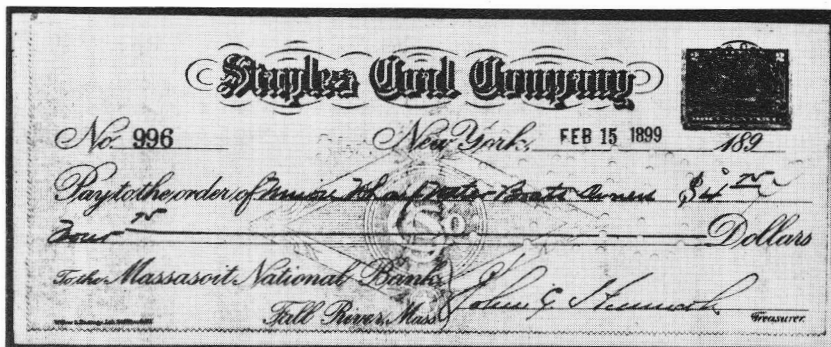 Staples Coal Company
No. 996 New York, FEB 15 1899 189
Pay to the order of Union Wharf Water Boats Owners $4
Four Dollars
To the Massasoit National Bank
Fall River, Mass John G.
Treasurer.